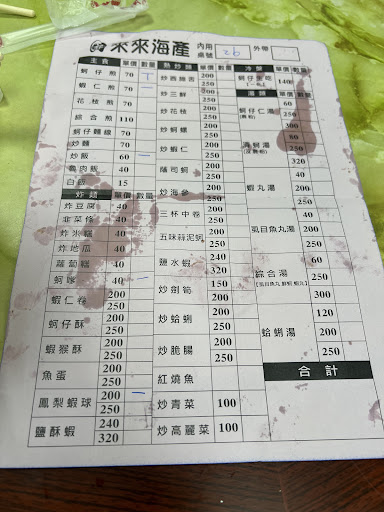 米來海產 內用 桌號 26 外帶
主食 單價 數量
蚵仔煎 70 一
蝦仁煎 70 一
花枝煎 70
綜合煎 110
蚵仔麵線 70
炒麵 60
炒飯 60 一
魯肉飯 40
白飯 15
炸類 單價 數量
炸豆腐 40
韭菜條 40
炸米糕 40
炸地瓜 40
蘿蔔糕 40
蚵嗲 40 一
蝦仁卷 200
250
蚵仔酥 200
250
蝦猴酥 200
250
魚蛋 200
250
鳳梨蝦球 200 一
250
鹽酥蝦 240
320
熱炒類 單價 數量
200
250
炒三鮮 200
250
炒花枝 200
250
炒蚵螺 200
250
炒蝦仁 200
250
蔭司蚵 200
250
炒海參 200
250
三杯中卷 200
250
五味蒜泥蚵 200
250
鹽水蝦 240
320
炒劍筍 150
200
炒蛤蜊 200
250
炒脆腸 200
250
紅燒魚
炒青菜 100
炒高麗菜 100
冷盤 單價 數量
蚵仔生吃 140
湯類 單價 數量
蚵仔仁湯 60
300
海蚵湯 80
320
蝦丸湯 40
200
250
虱目魚丸湯 40
200
250
綜合湯 60
【虱目魚丸 鮮蚵 蝦丸】 250
300
蛤蜊湯 120
200
250
合計